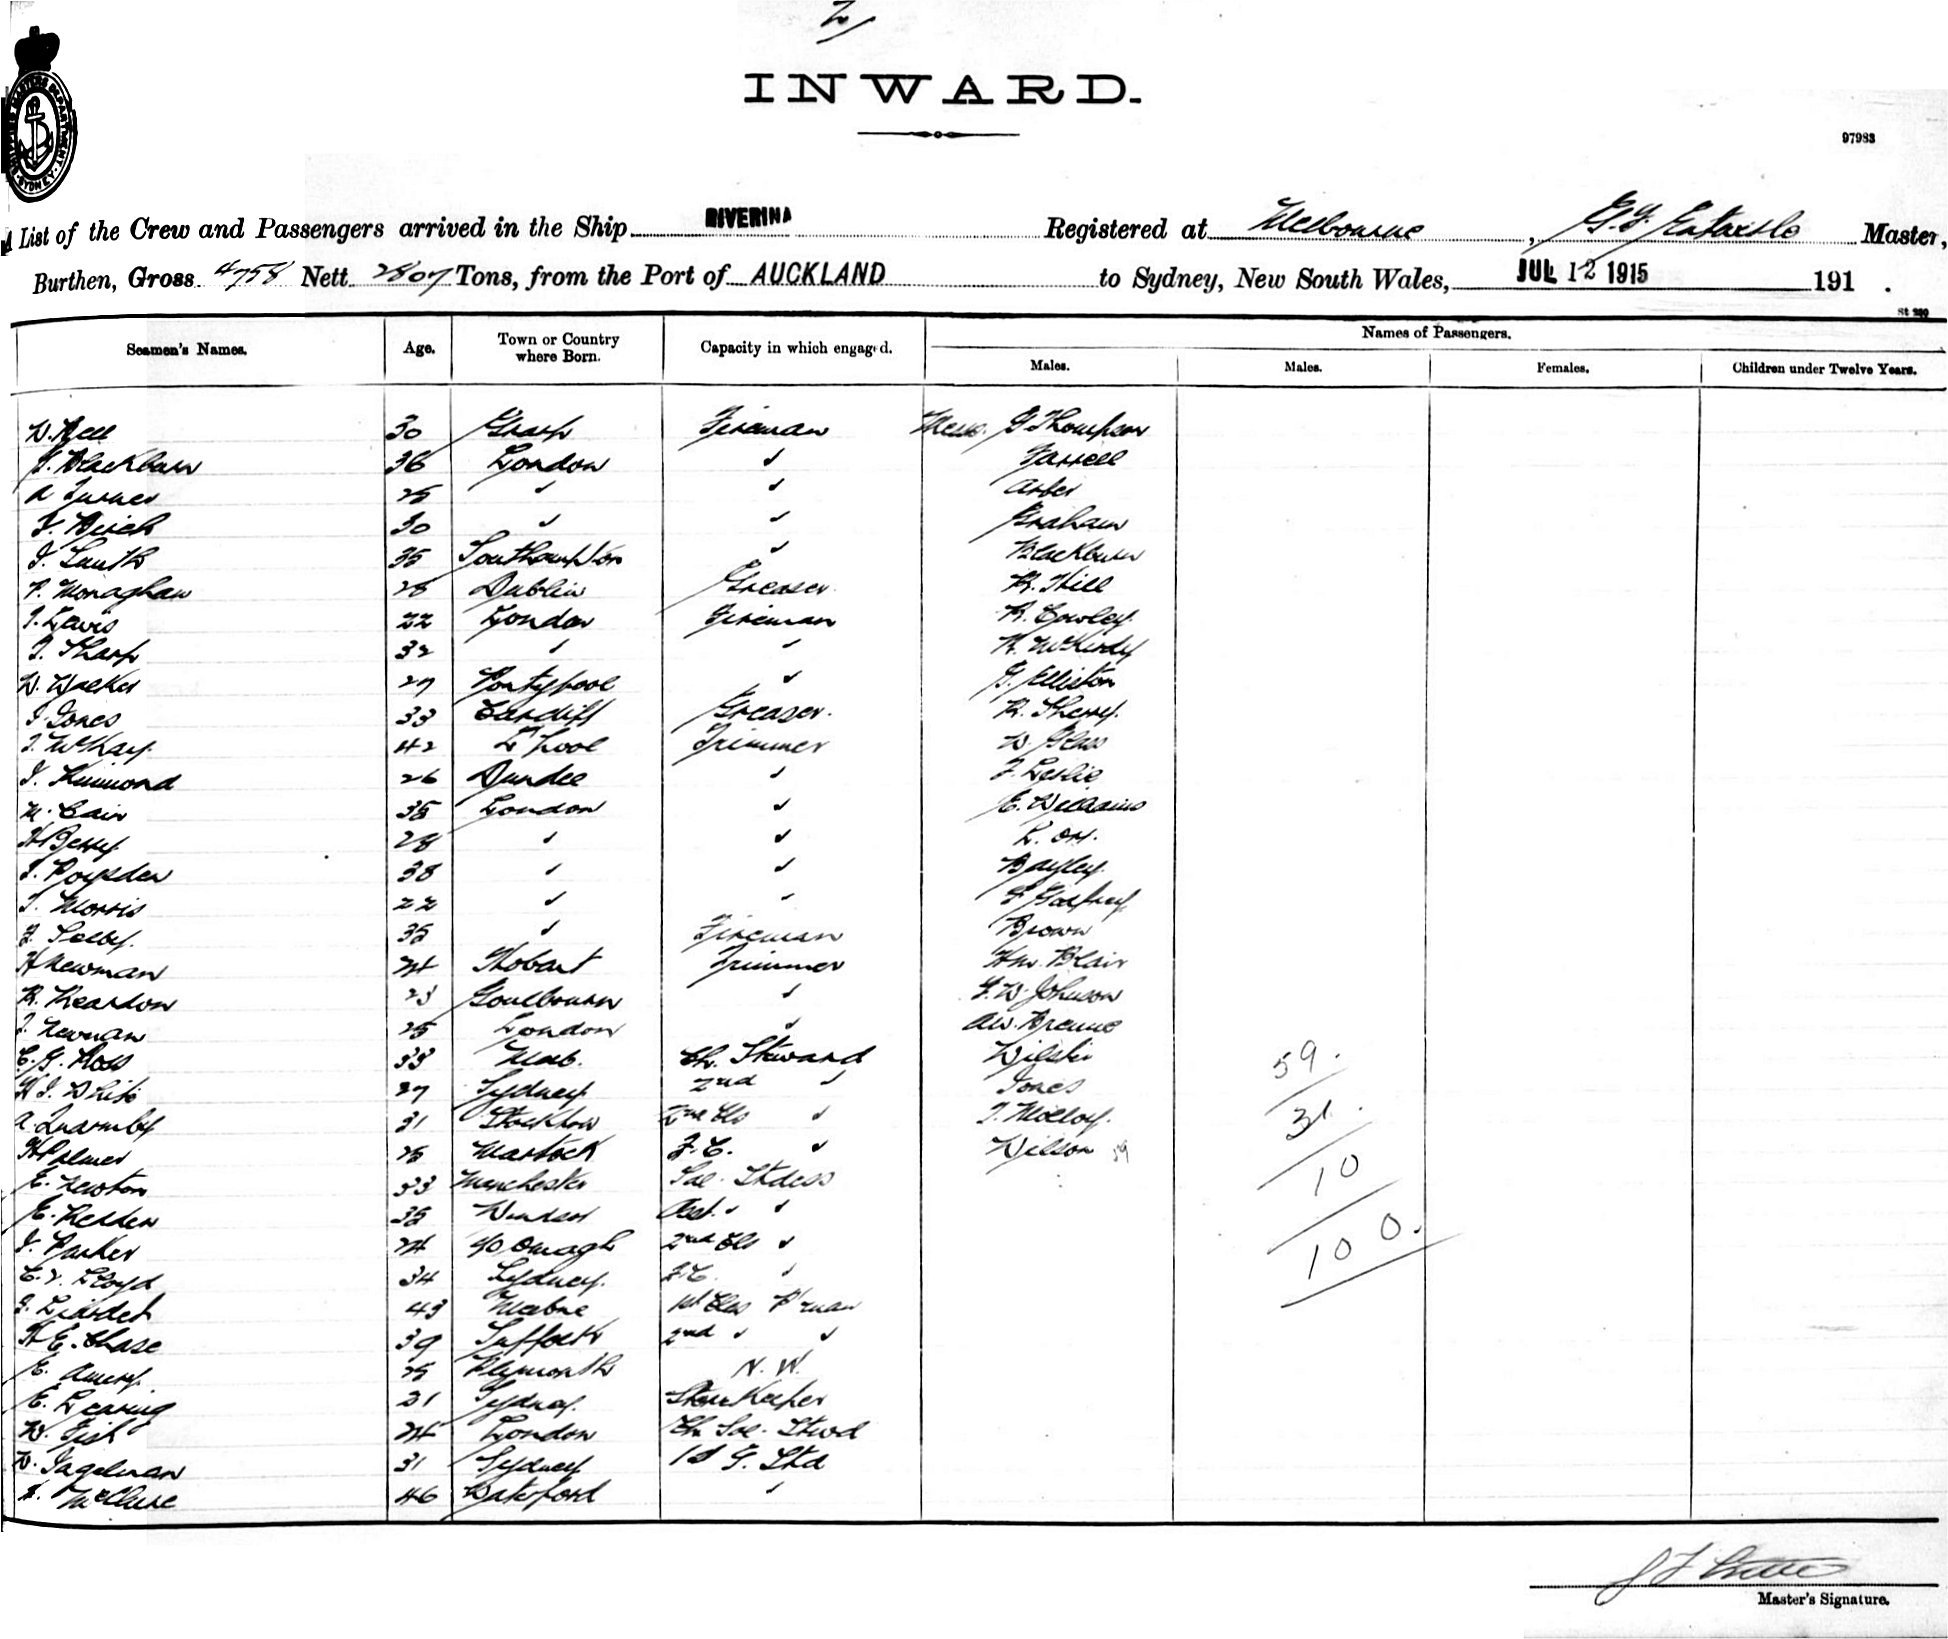 INWARD.
97983
A List of the Crew and Passengers arrived in the Ship RIVERINA Registered at Melbourne, G. G. Entwisle Master,
Burthen, Gross 4758 Nett 2807 Tons, from the Port of AUCKLAND to Sydney, New South Wales, JUL 12 1915 191 .
St 290
Seamen's Names. Age. Town or Country where Born. Capacity in which engaged. Names of Passengers.
Males. Males. Females. Children under Twelve Years.
W. Bell 30 Fireman Messrs. G Thompson
Blackburn 36 London " Farrell
A Turner 25 " " Arber
F. Birch 30 " " Graham
35 Southampton " Blackburn
P. Monaghan 28 Dublin Greaser R. Hill
J. Lewis 22 London Fireman R. Cowley.
J. Sharp 32 " " R. McKirdy
W. Walker 27 Pontypool " G. Elliston
J. Jones 33 Cardiff Greaser. R. Sherry.
J. McKay. 42 L'pool Trimmer W. Glass
J. Kinmond 26 Dundee " F. Leslie
M. Cair 35 London " E. Williams
H Berry. 28 " " L. Orr.
J. Poysden 38 " " Bayley.
J. Morris 22 " " F Godfrey
F. Selby. 35 " Fireman Brown
H Newman 24 Hobart Trimmer Hm. Blair
R. Reardon 23 Goulbourn " G. W. Johnson
J. Newman 25 London " AW.
C. G. Ross 33 Melb. Ch. Steward
H J. White 27 Sydney. 2nd " Jones
A. Quarmby 31 Stockton 2nd Cls " J. Molloy.
H Palmer 25 Martock F. C. " Wilson 59
E. Newton 33 Manchester Sal. Stdess
E. 35 Windsor Asst. " "
J. Parker 24 Y/O Omagh 2nd Cls "
C. V. Lloyd 34 Sydney. F.C. "
J. Liardet 43 Melbne 1st Clas P'man
H E. Chase 39 Suffolk 2nd " "
E. Amery. 25 Plymouth N. W.
E. Learing 21 Sydney. Store Keeper
W. Fish 24 London Ch Sal. Stwd
W. Jagelman 31 Sydney 1st G. Std
McClure 46 Waterford "
59.
31.
10
100.
Master's Signature.